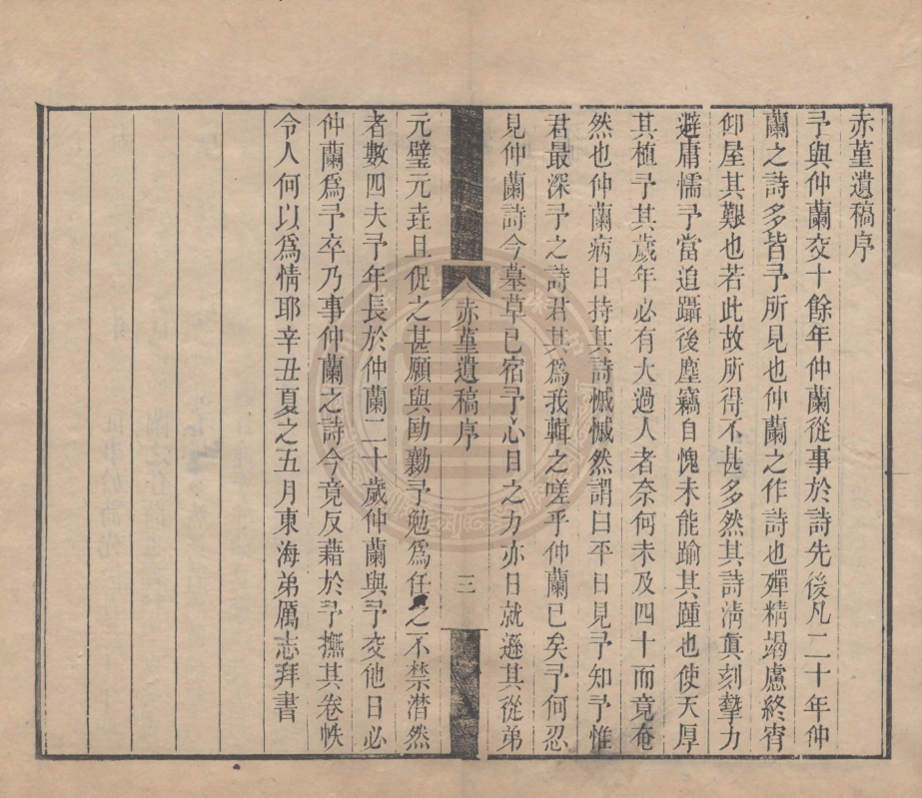 赤堇遺稿序
予與仲蘭交十餘年仲蘭從事於詩先後凡二十年仲
蘭之詩多皆予所見也仲蘭之作詩也殫精竭慮終宵
仰屋其艱也若此故所得不甚多然其詩淸眞刻摯力
避庸懦予當追躡後塵竊自愧未能踰其踵也使天厚
其植予其歲年必有大過人者奈何未及四十而竟奄
然也仲蘭病日持其詩慽慽然謂曰平日見予知予惟
君最深予之詩君其爲我輯之嗟乎仲蘭已矣予何忍
見仲蘭詩今墓草已宿予心目之力亦日就遜其從弟
赤堇遺稿序
三
元璧元垚且促之甚願與勖勷予勉爲任之不禁潸然
者數四夫予年長於仲蘭二十歲仲蘭與予交他日必
仲蘭爲予卒乃事仲蘭之詩今竟反藉於予撫其卷帙
令人何以爲情耶辛丑夏之五月東海弟厲志拜書